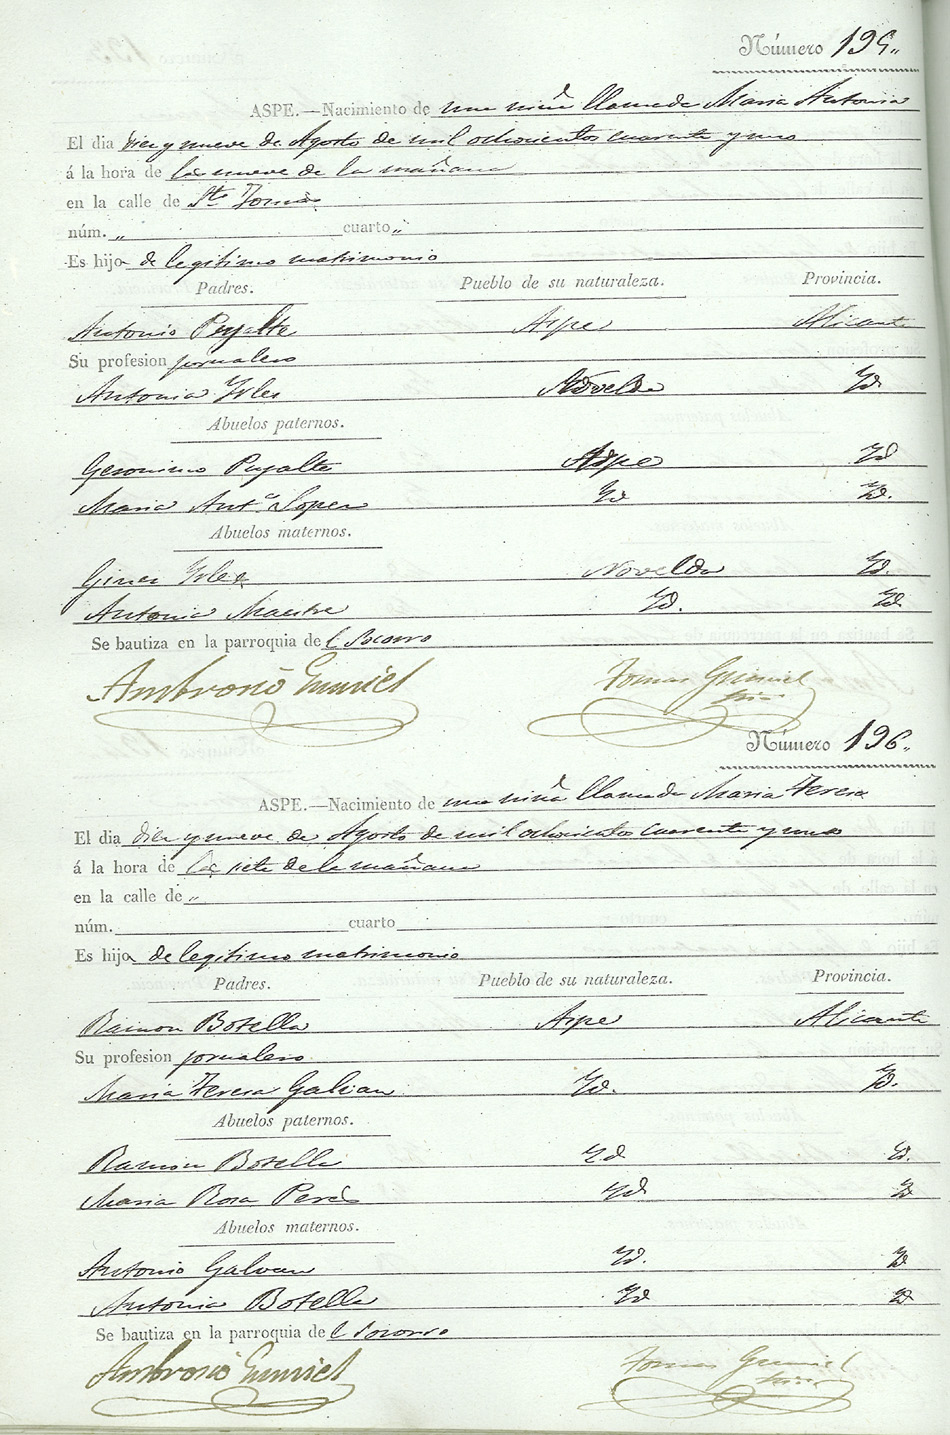 Número 195..
ASPE.—Nacimiento de una niña llamada Maria Antonia
El dia diez y nueve de Agosto de mil ochocientos cuarenta y uno
á la hora de las nueve de la mañana
en la calle de Sto. Tomas
núm. „ cuarto „
Es hija de legitimo matrimonio
Padres. Pueblo de su naturaleza. Provincia.
Antonio Puyalte Aspe Alicante
Su profesion jornalero
Antonia Novelda Yd.
Abuelos paternos.
Geronimo Puyalte Aspe Yd
Maria Anta. Lopez Yd Yd.
Abuelos maternos.
Giner Novelda Yd.
Antonia Maestre Yd. Yd.
Se bautiza en la parroquia de l Socorro
Ambrosio Tomas
Número 196..
ASPE.—Nacimiento de una niña llamada Maria Teresa
El dia diez y nueve de Agosto de mil ochocientos cuarenta y uno
á la hora de las siete de la mañana
en la calle de „
núm. cuarto
Es hija de legitimo matrimonio
Padres. Pueblo de su naturaleza. Provincia.
Ramon Botella Aspe Alicante
Su profesion jornalero
Maria Teresa Galvan Yd. Yd.
Abuelos paternos.
Ramon Botella Yd Yd.
Maria Rosa Peres Yd Yd
Abuelos maternos.
Antonio Galvan Yd. Yd
Antonia Botella Yd Yd
Se bautiza en la parroquia de l Socorro
Ambrosio Tomas